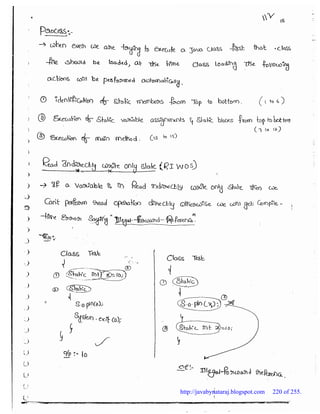 Process:-
→ when ever we are trying to execute a Java class first that .class
file should be loaded, at the time class loading the following
actions will be performed automatically.
① identification of static members from top to bottom. (1 to 6)
② Execution of static variable assignments & static blocks from top to bottom
(7 to 12)
③ Execution of main method. (13 to 15)
Read Indirectly write only state (RIWOS)
→ If a variable is in Read Indirectly write only state then we
can't perform read operation directly otherwise we will get Compile-
time Error saying "Illegal forward reference"
Ex:-
class Test
{
① static int x=10; ⑦
② static
{
S.o.pln(x);
System.exit(0);
}
}
o/p :- 10
class Test
{
① static
{
S.o.pln(x);
}
② static int x=10;
}
CE:- Illegal forward reference.
http://javabynataraj.blogspot.com 220 of 255.